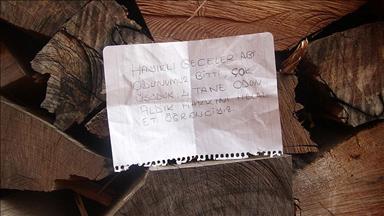 HAYIRLI GECELER ABİ
ODUNUMUZ BİTTİ, ÇOK
ÜŞÜDÜK 4 TANE ODUN
ALDIK HAKKINI HELAL
ET ÖĞRENCİYİZ